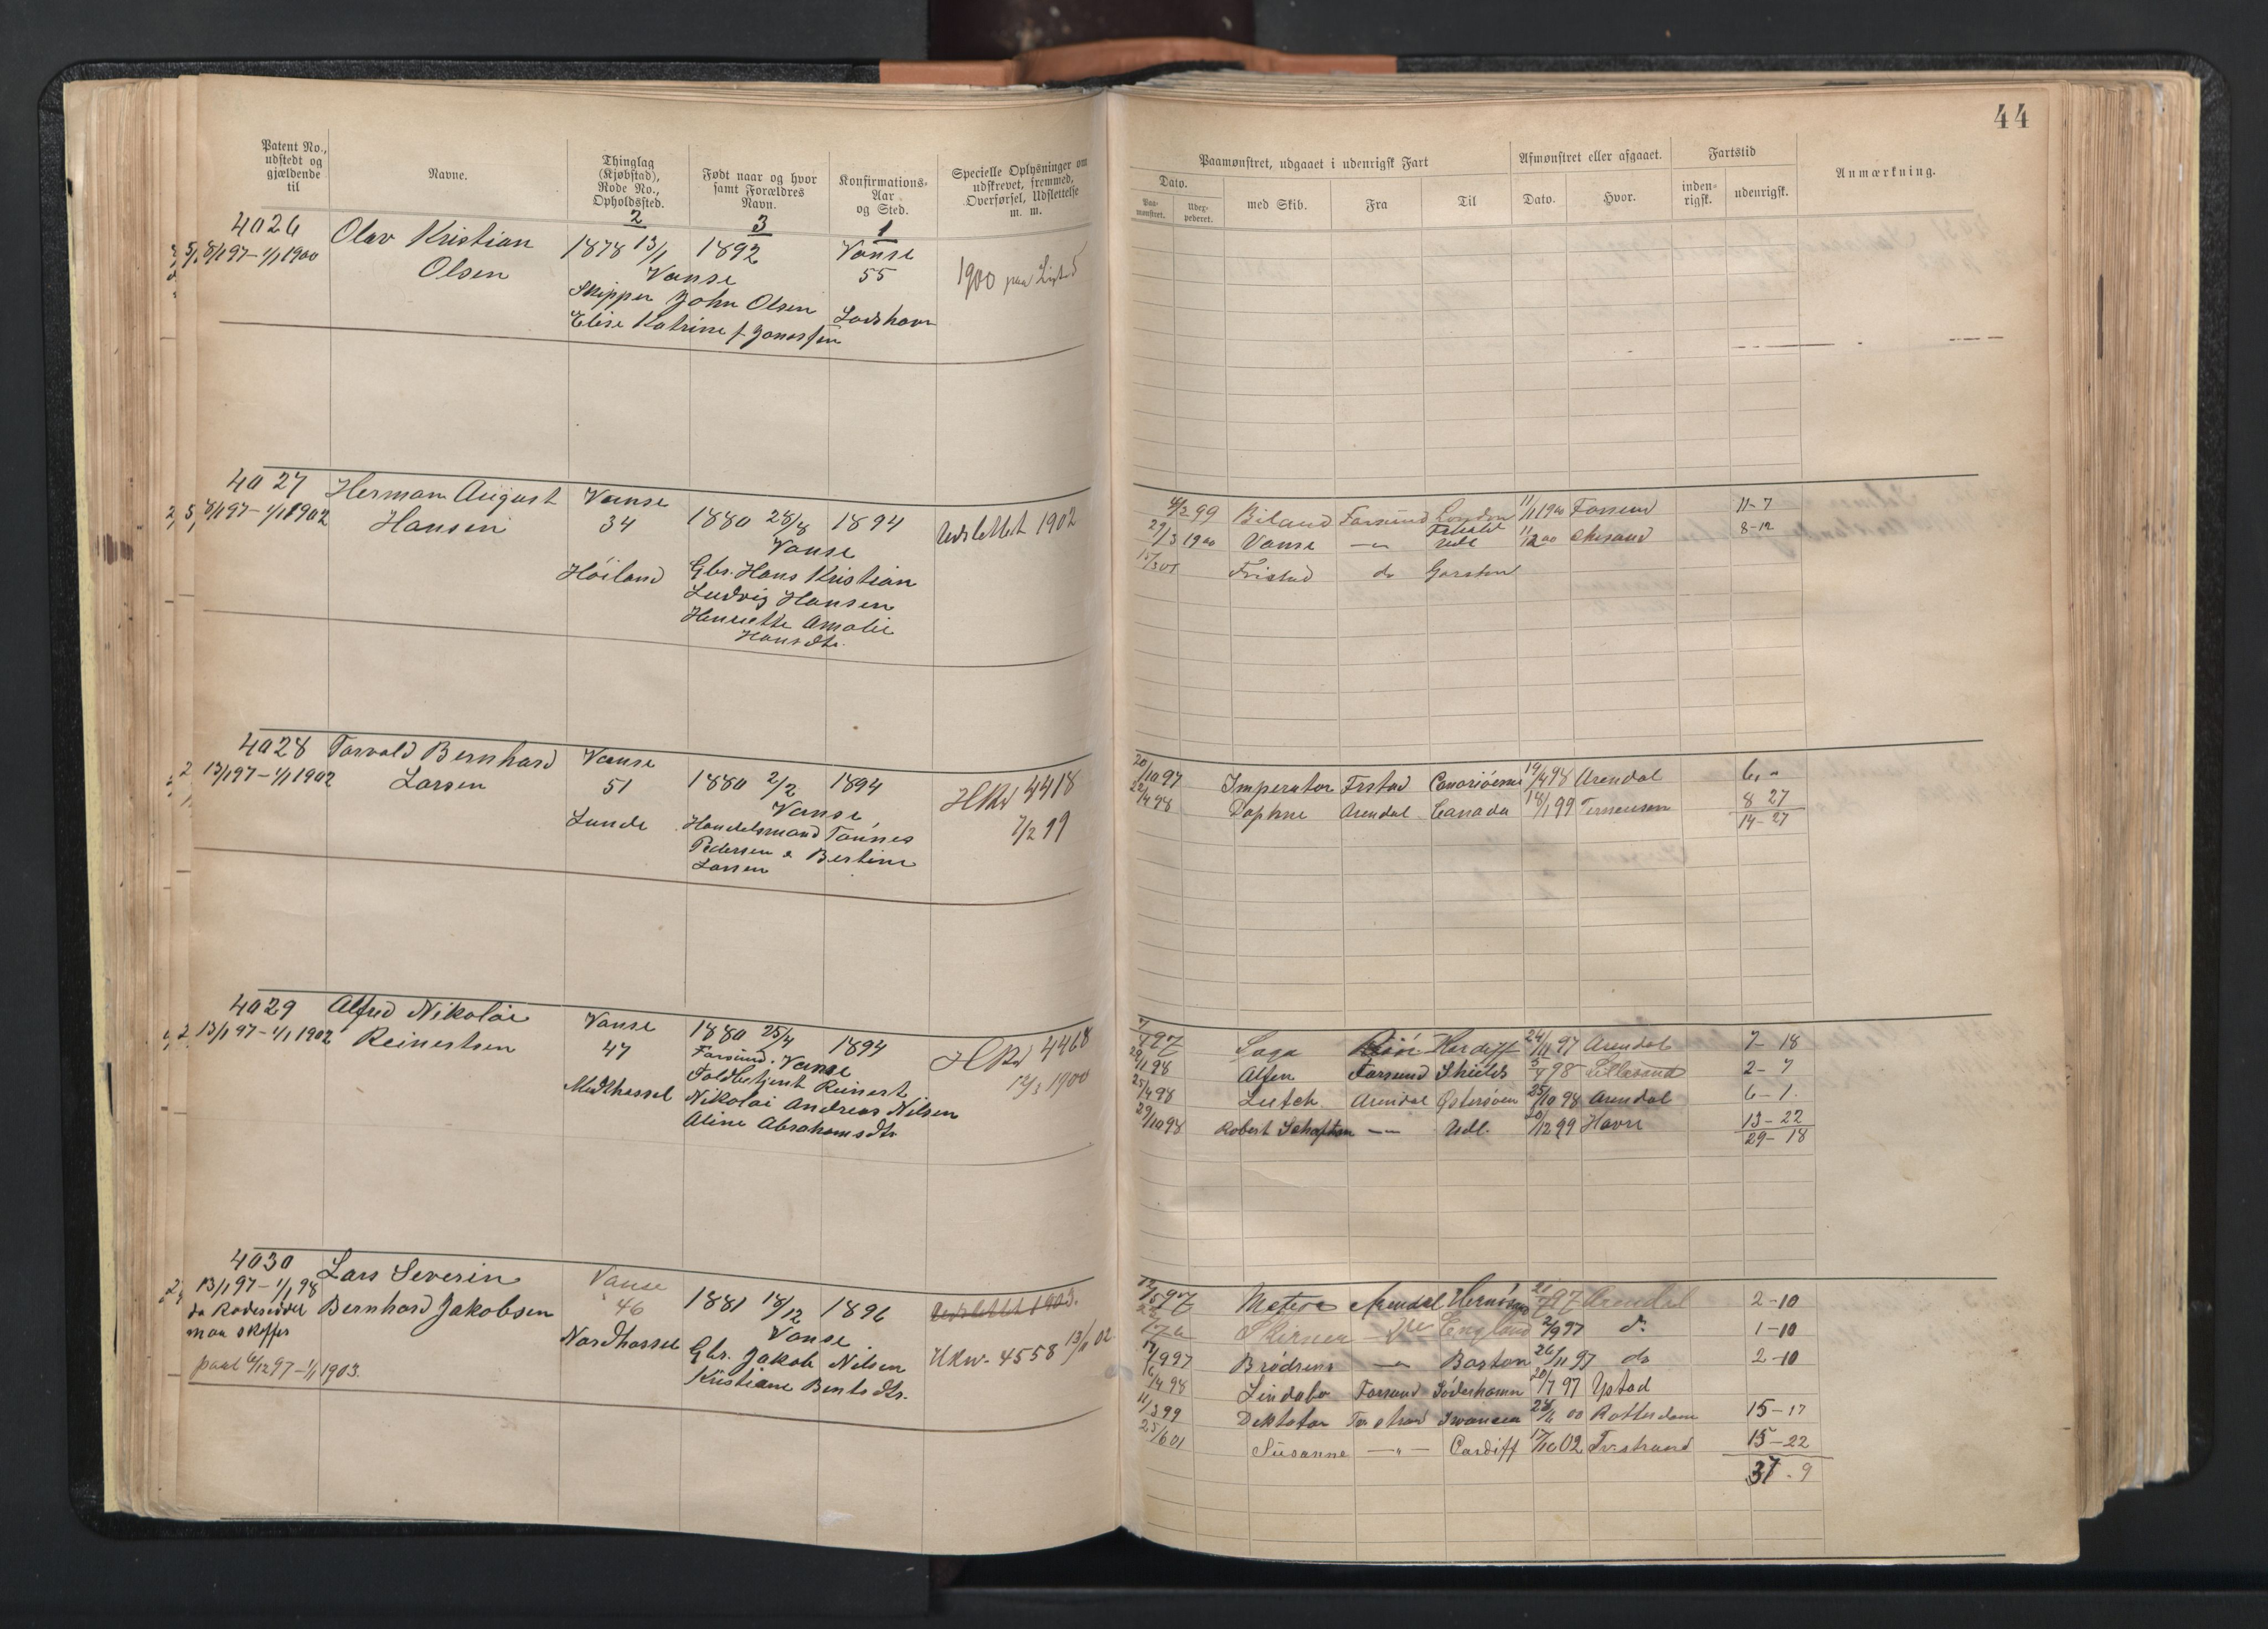 44
Patent No., udstedt og gjældende til
Navne.
Thinglag (Kjøbstad), Rode No., Opholdssted.
Født naar og hvor samt Forældres Navn.
Konfirmations-Aar og Sted.
Specielle Oplysninger om udskrevet, fremmed, Overførsel, Udslettelse m. m.
Paamønstret, udgaaet i udenrigsk Fart
Afmønstret eller afgaaet.
Fartstid
Anmærkning.
Dato.
Paa-mønstret.
Udex-pederet.
med Skib.
Fra
Til
Dato.
Hvor.
inden-rigsk.
udenrigsk.
2 3 1
4026 Olav Kristian Olsen
8/1 97 – 1/1 1900
1878 13/1 1892 Vanse
Vanse 55
Skipper John Olsen Lodshavn
Elise Katrine f. Jonassen
1900 paa List 5
4027 Herman August Hansen
8/1 97 – 1/1 1902
Vanse 34 Höiland
1880 28/8 1894
Vanse
Gbr. Hans Kristian
Ludvig Hansen
Henriette Amalie
Hansdtr.
Udslettet 1902
4/2 99 Biland Farsund London 11/1 1900 Farsund 11-7
27/3 1900 Vanse — " — Udl 11/12 00 8-12
15/3 01 do
4028 Torvald Bernhard Larsen
13/1 97 – 1/1 1902
Vanse 51 Lunde
1880 2/2 1894
Vanse
Handelsmand Tönnes
Pedersen & Bertine
Larsen
HKd 4418
7/2 99
20/10 97 Imperator Frstad Canariöerne 19/4 98 Arendal 6 "
22/4 98 Daphne Arendal Canada 18/1 99 Terneusen 8 27
14-27
4029 Alfred Nikolai Reinertsen
13/1 97 – 1/1 1902
Vanse 47 Medhassel
1880 25/4 1894
Farsund. Vanse
Toldbetjent Reinert
Nikolai Andreas Nilsen
Aline Abrahamsdtr
HKd 4468
12/3 1900
Saga Kardiff 24/11 97 Arendal 7-18
29/1 98 Alfen Farsund Shields Lillesand 2-7
25/4 98 Arendal Östersöen 25/10 98 Arendal 6-1.
29/10 98 Robert — " — Udl. 20/12 99 Havre 13-22
29-18
4030 Lars Severin
Bernhard Jakobsen
13/1 97 – 1/1 98
da Rodeseddel
maa skaffes
paal 6/12 97 – 1/1 1903.
Vanse 46 Nordhassel
1881 18/12 1896
Vanse
Gbr. Jakob Nilsen
Kristiane Bentsdtr.
Udslettet 1903.
HKw. 4558 13/1 02
12/5 97 Arendal Arendal 2-10
England 2/9 97 do 1-10
Brödrene — " — Boston 26/11 97 do 2-10
16/4 98 Farsund Söderhamn 20/7 97 Ystad
11/3 99 Swansea Rotterdam 15-17
25/6 01 Susanne — " — Cardiff 17/10 02 Tvestrand 15-22
37-9